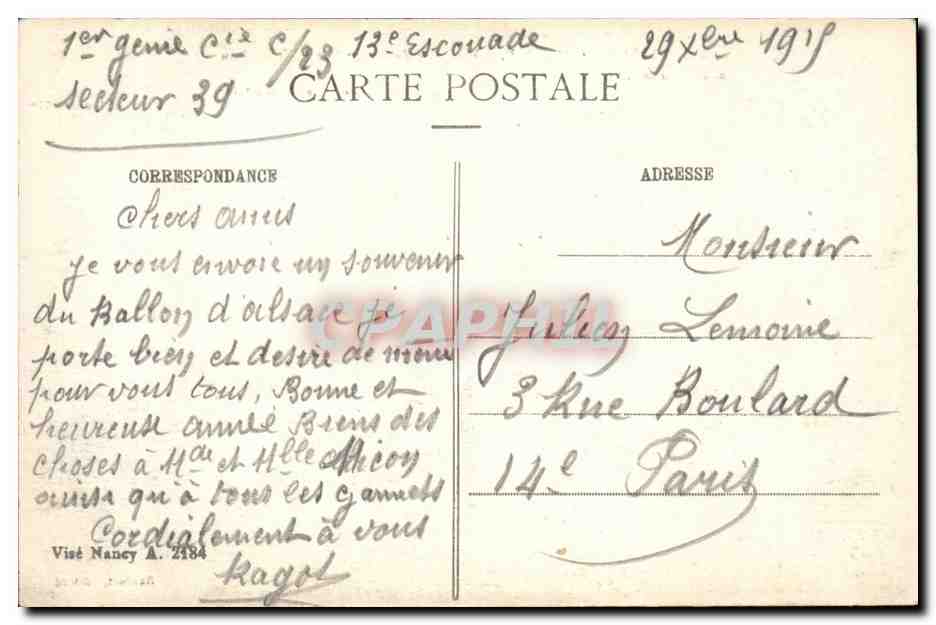 1er genie Cie C/23 13e Escouade 29 Xbre 1915
secteur 39
CARTE POSTALE
CORRESPONDANCE
Chers amis
je vous envoie un souvenir
du Ballon d'alsace je
porte bien et desire de meme
pour vous tous, Bonne et
heureuse année Biens des
choses à Mde et Mlle
ainsi qu'à tous les
Cordialement à vous
Ragot
Visé Nancy A. 2184
ADRESSE
Monsieur
Julien Lemoine
3 Rue Boulard
14e Paris
CPAPHIL